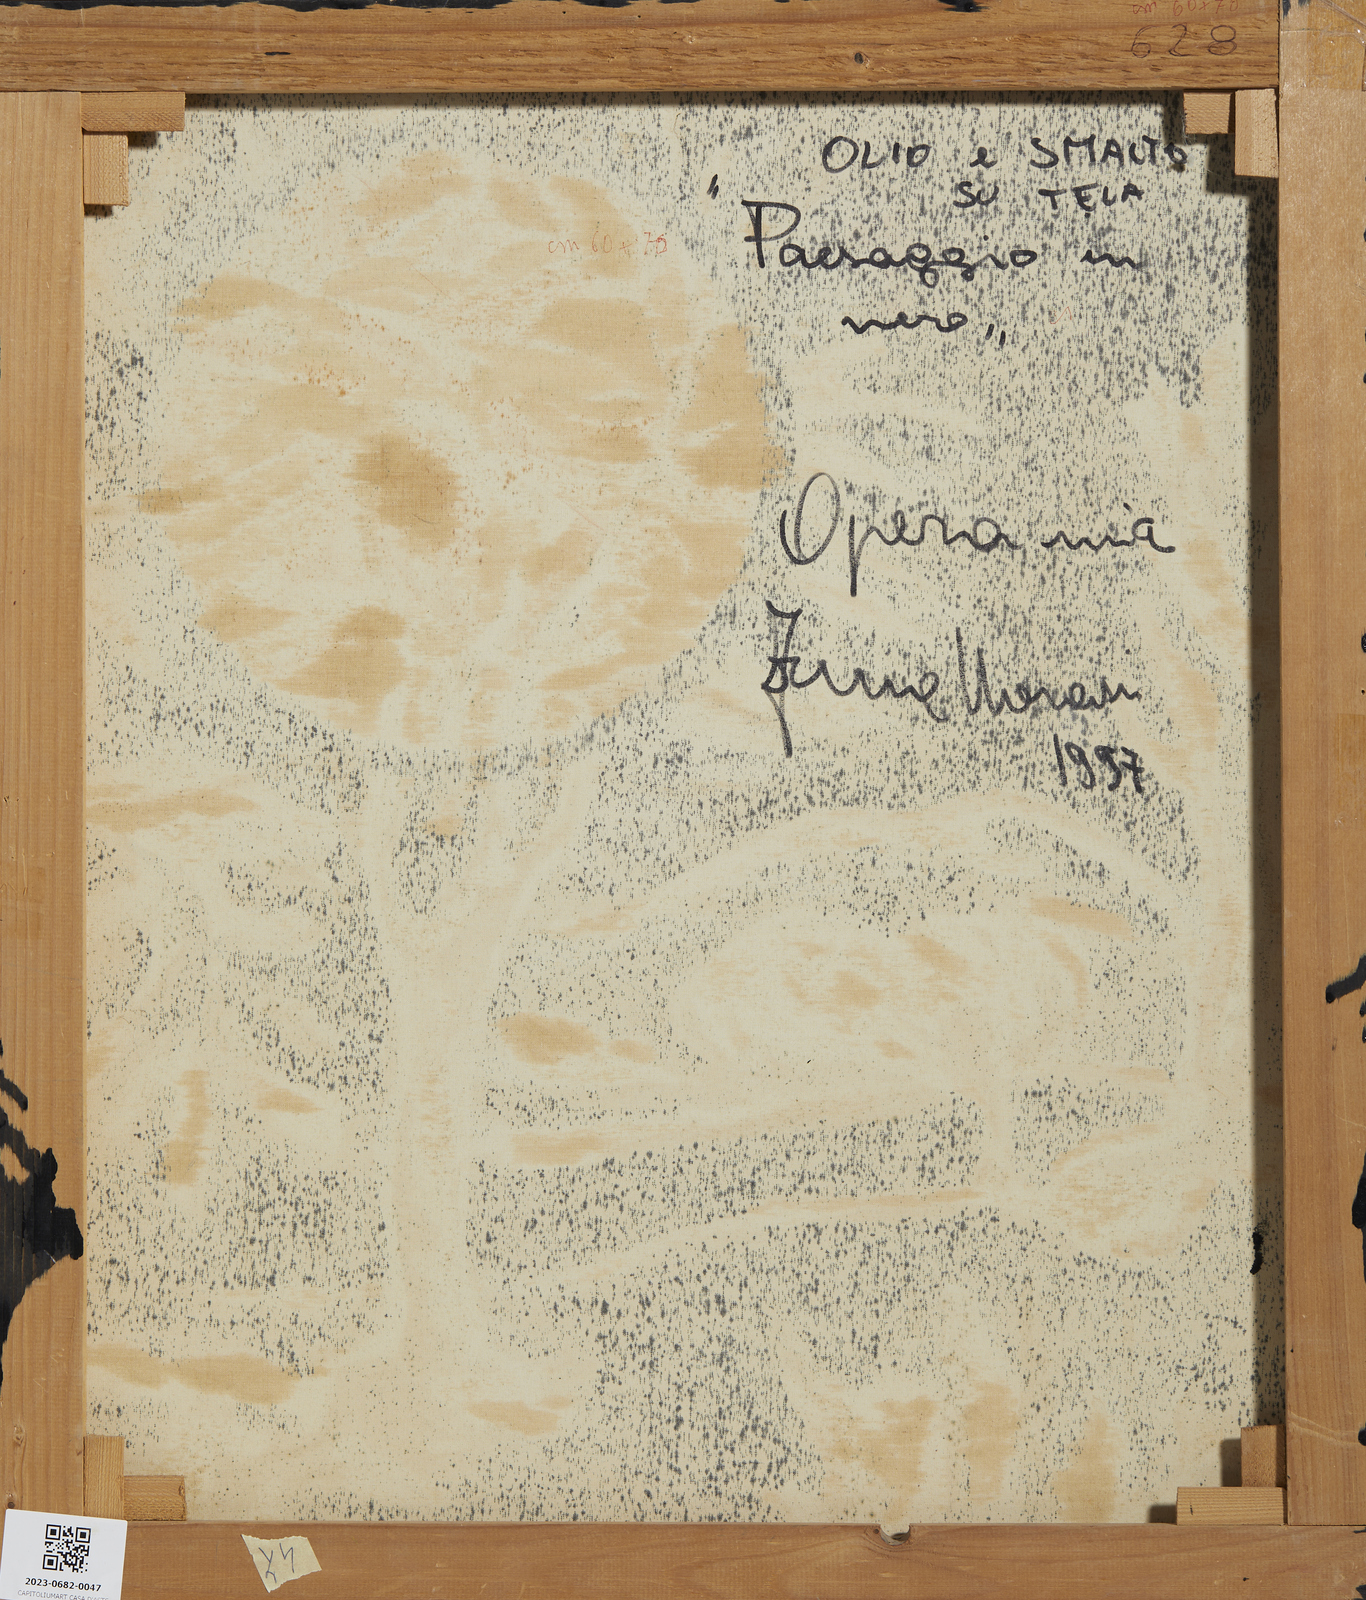 cm 60x70
628
OLIO e SMALTO
SU TELA
"Paesaggio in
nero"
cm 60x70
Opera mia
1997
2023-0682-0047
CAPITOLIUMART CASA D'ASTE